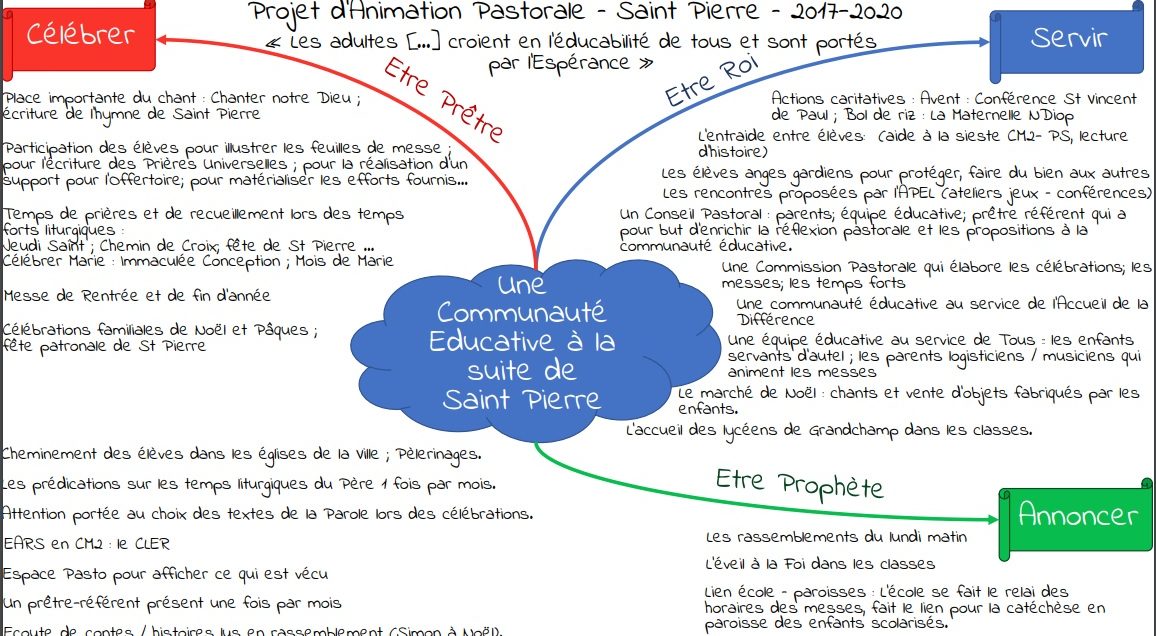 Projet d'Animation Pastorale - Saint Pierre - 2017-2020
« Les adultes [...] croient en l'éducabilité de tous et sont portés
par l'Espérance »
Célébrer
Etre Prêtre
Place importante du chant : Chanter notre Dieu ;
écriture de l'hymne de Saint Pierre
Participation des élèves pour illustrer les feuilles de messe ;
pour l'écriture des Prières Universelles ; pour la réalisation d'un
support pour l'Offertoire; pour matérialiser les efforts fournis...
Temps de prières et de recueillement lors des temps
forts liturgiques :
Jeudi Saint ; Chemin de Croix; fête de St Pierre ...
Célébrer Marie : Immaculée Conception ; Mois de Marie
Messe de Rentrée et de fin d'année
Célébrations familiales de Noël et Pâques ;
fête patronale de St Pierre
Servir
Etre Roi
Actions caritatives : Avent : Conférence St Vincent
de Paul ; Bol de riz : La Maternelle NDiop
L'entraide entre élèves: (aide à la sieste CM2- PS, lecture
d'histoire)
Les élèves anges gardiens pour protéger, faire du bien aux autres
Les rencontres proposées par l'APEL (ateliers jeux - conférences)
Un Conseil Pastoral : parents; équipe éducative; prêtre référent qui a
pour but d'enrichir la réflexion pastorale et les propositions à la
communauté éducative.
Une Commission Pastorale qui élabore les célébrations; les
messes; les temps forts
Une communauté éducative au service de l'Accueil de la
Différence
Une équipe éducative au service de Tous : les enfants
servants d'autel ; les parents logisticiens / musiciens qui
animent les messes
Le marché de Noël : chants et vente d'objets fabriqués par les
enfants.
L'accueil des lycéens de Grandchamp dans les classes.
Une
Communauté
Educative à la
suite de
Saint Pierre
Cheminement des élèves dans les églises de la Ville ; Pèlerinages.
Les prédications sur les temps liturgiques du Père 1 fois par mois.
Attention portée au choix des textes de la Parole lors des célébrations.
EARS en CM2 : le CLER
Espace Pasto pour afficher ce qui est vécu
Un prêtre-référent présent une fois par mois
Ecoute de contes / histoires lus en rassemblement (Simon à Noël).
Etre Prophète
Annoncer
Les rassemblements du lundi matin
L'éveil à la Foi dans les classes
Lien école - paroisses : L'école se fait le relai des
horaires des messes, fait le lien pour la catéchèse en
paroisse des enfants scolarisés.